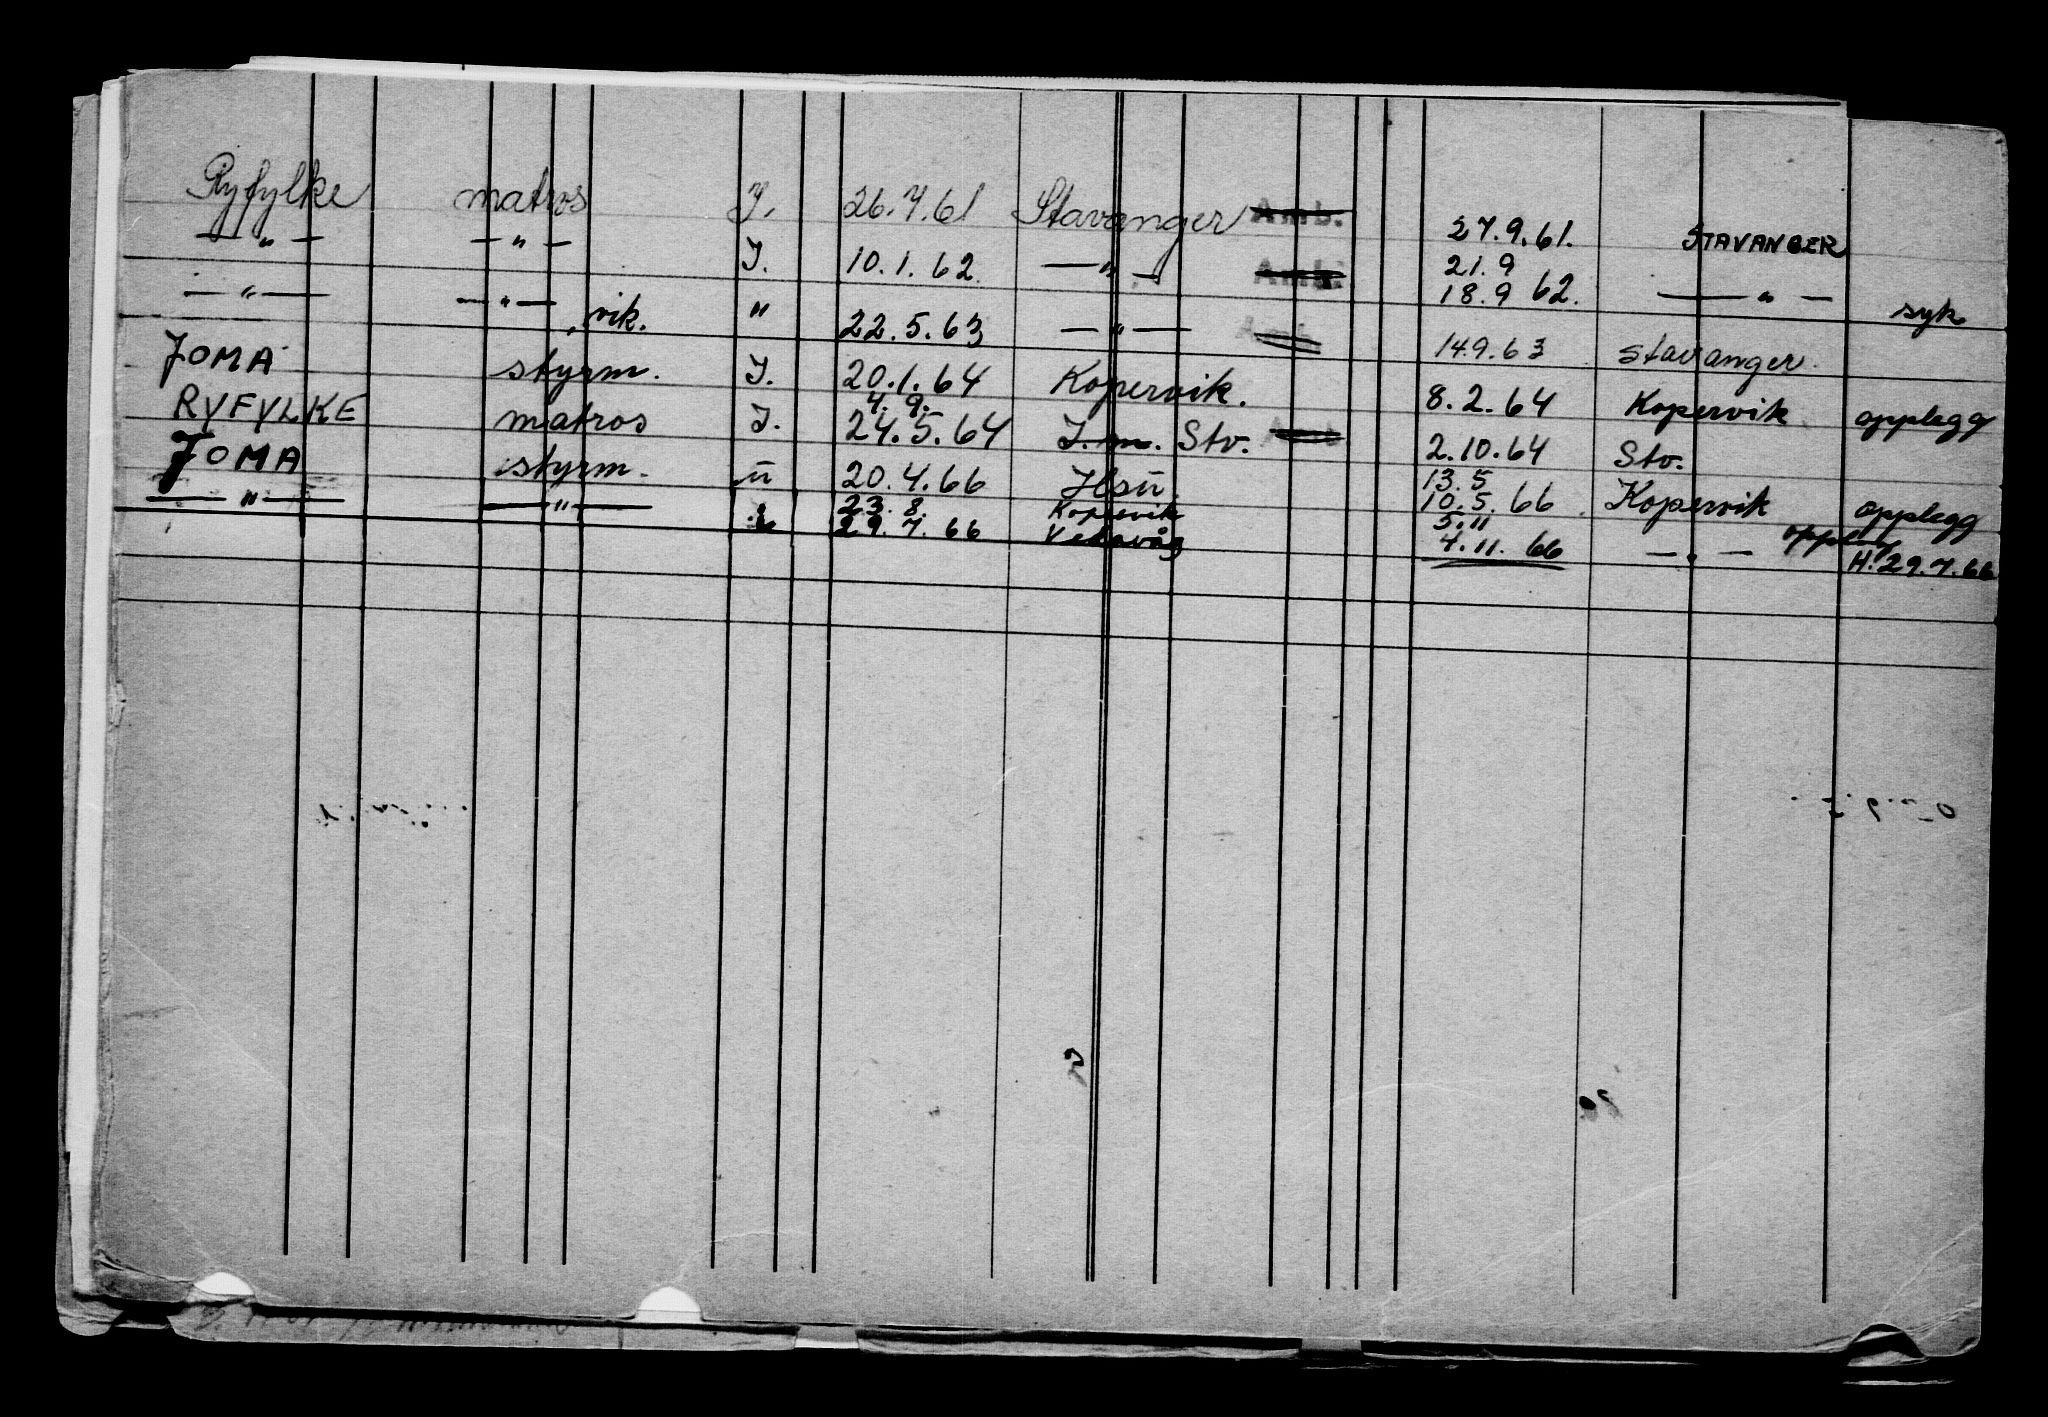 Ryfylke matros I. 26.7.61 Stavanger Amb. 27.9.61. STAVANGER
— " — — " — I. 10.1.62. — " — Amb. 21.9 18.9 62. — " — syk
— " — — " — , vik. " 22.5.63 — " — Amb. 14.9.63 Stavanger.
JOMA styrm. I. 20.1.64 Kopervik. 8.2.64 Kopervik opplegg
RYFYLKE matros I. 4.9. 24.5.64 I.m. Stv. 2.10.64 Stv.
JOMA styrm. " 20.4.66 13.5 10.5.66 Kopervik opplegg
— " — — " — 23.8. 29.7.66 Kopervik Vedavåg 5.11 4.11.66 — " — opplegg H! 29.7.66